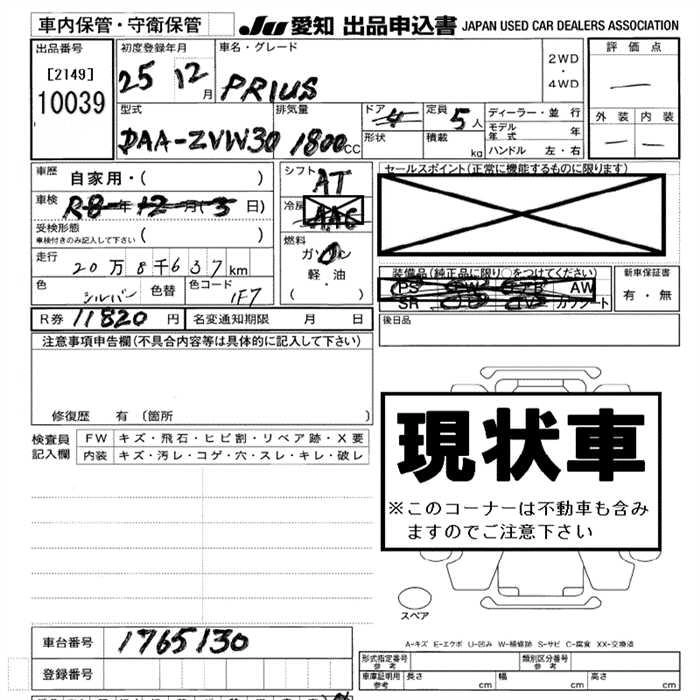 車内保管・守衛保管
JU 愛知 出品申込書 JAPAN USED CAR DEALERS ASSOCIATION
出品番号
[2149]
10039
初度登録年月
25 12月
車名・グレード
PRIUS
2WD
・
4WD
評価点
—
外装 内装
— —
型式
DAA-ZVW30
排気量
1800CC
ドア 4
形状
定員 5人
積載 kg
ディーラー・並行
モデル年式 年
ハンドル 左・右
車歴 自家用・( )
車検 R8年12月(3日)
受検形態
車検付きのみ記入して下さい ( )
走行 20万8千637km
色 シルバー 色替 色コード 1F7
シフト AT
冷房 AAC
燃料
ガソリン
軽・油
( ・ )
セールスポイント(正常に機能するものに限ります)
装備品(純正品に限り○をつけてください)
PS PW エアB AW
SR TV カワシート
新車保証書
有・無
R券 11820円
名変通知期限 月 日
後日品
注意事項申告欄(不具合内容等は具体的に記入して下さい)
修復歴 有(箇所 )
検査員記入欄
FW キズ・飛石・ヒビ割・リペア跡・X要
内装 キズ・汚レ・コゲ・穴・スレ・キレ・破レ
現状車
※このコーナーは不動車も含み
ますのでご注意下さい
スペア
A-キズ E-エクボ U-凹み W-補修跡 S-サビ C-腐食 XX-交換済
車台番号 1765130
登録番号
形式指定番号 参考
類別区分番号 参考
車庫証明用 参考 長さ cm 幅 cm 高さ cm